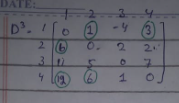 DATE:
1 2 3 4
D³ - 1 [ 0 1 -4 3 ]
2 6 0 2 2
3 11 5 0 7
4 12 6 1 0